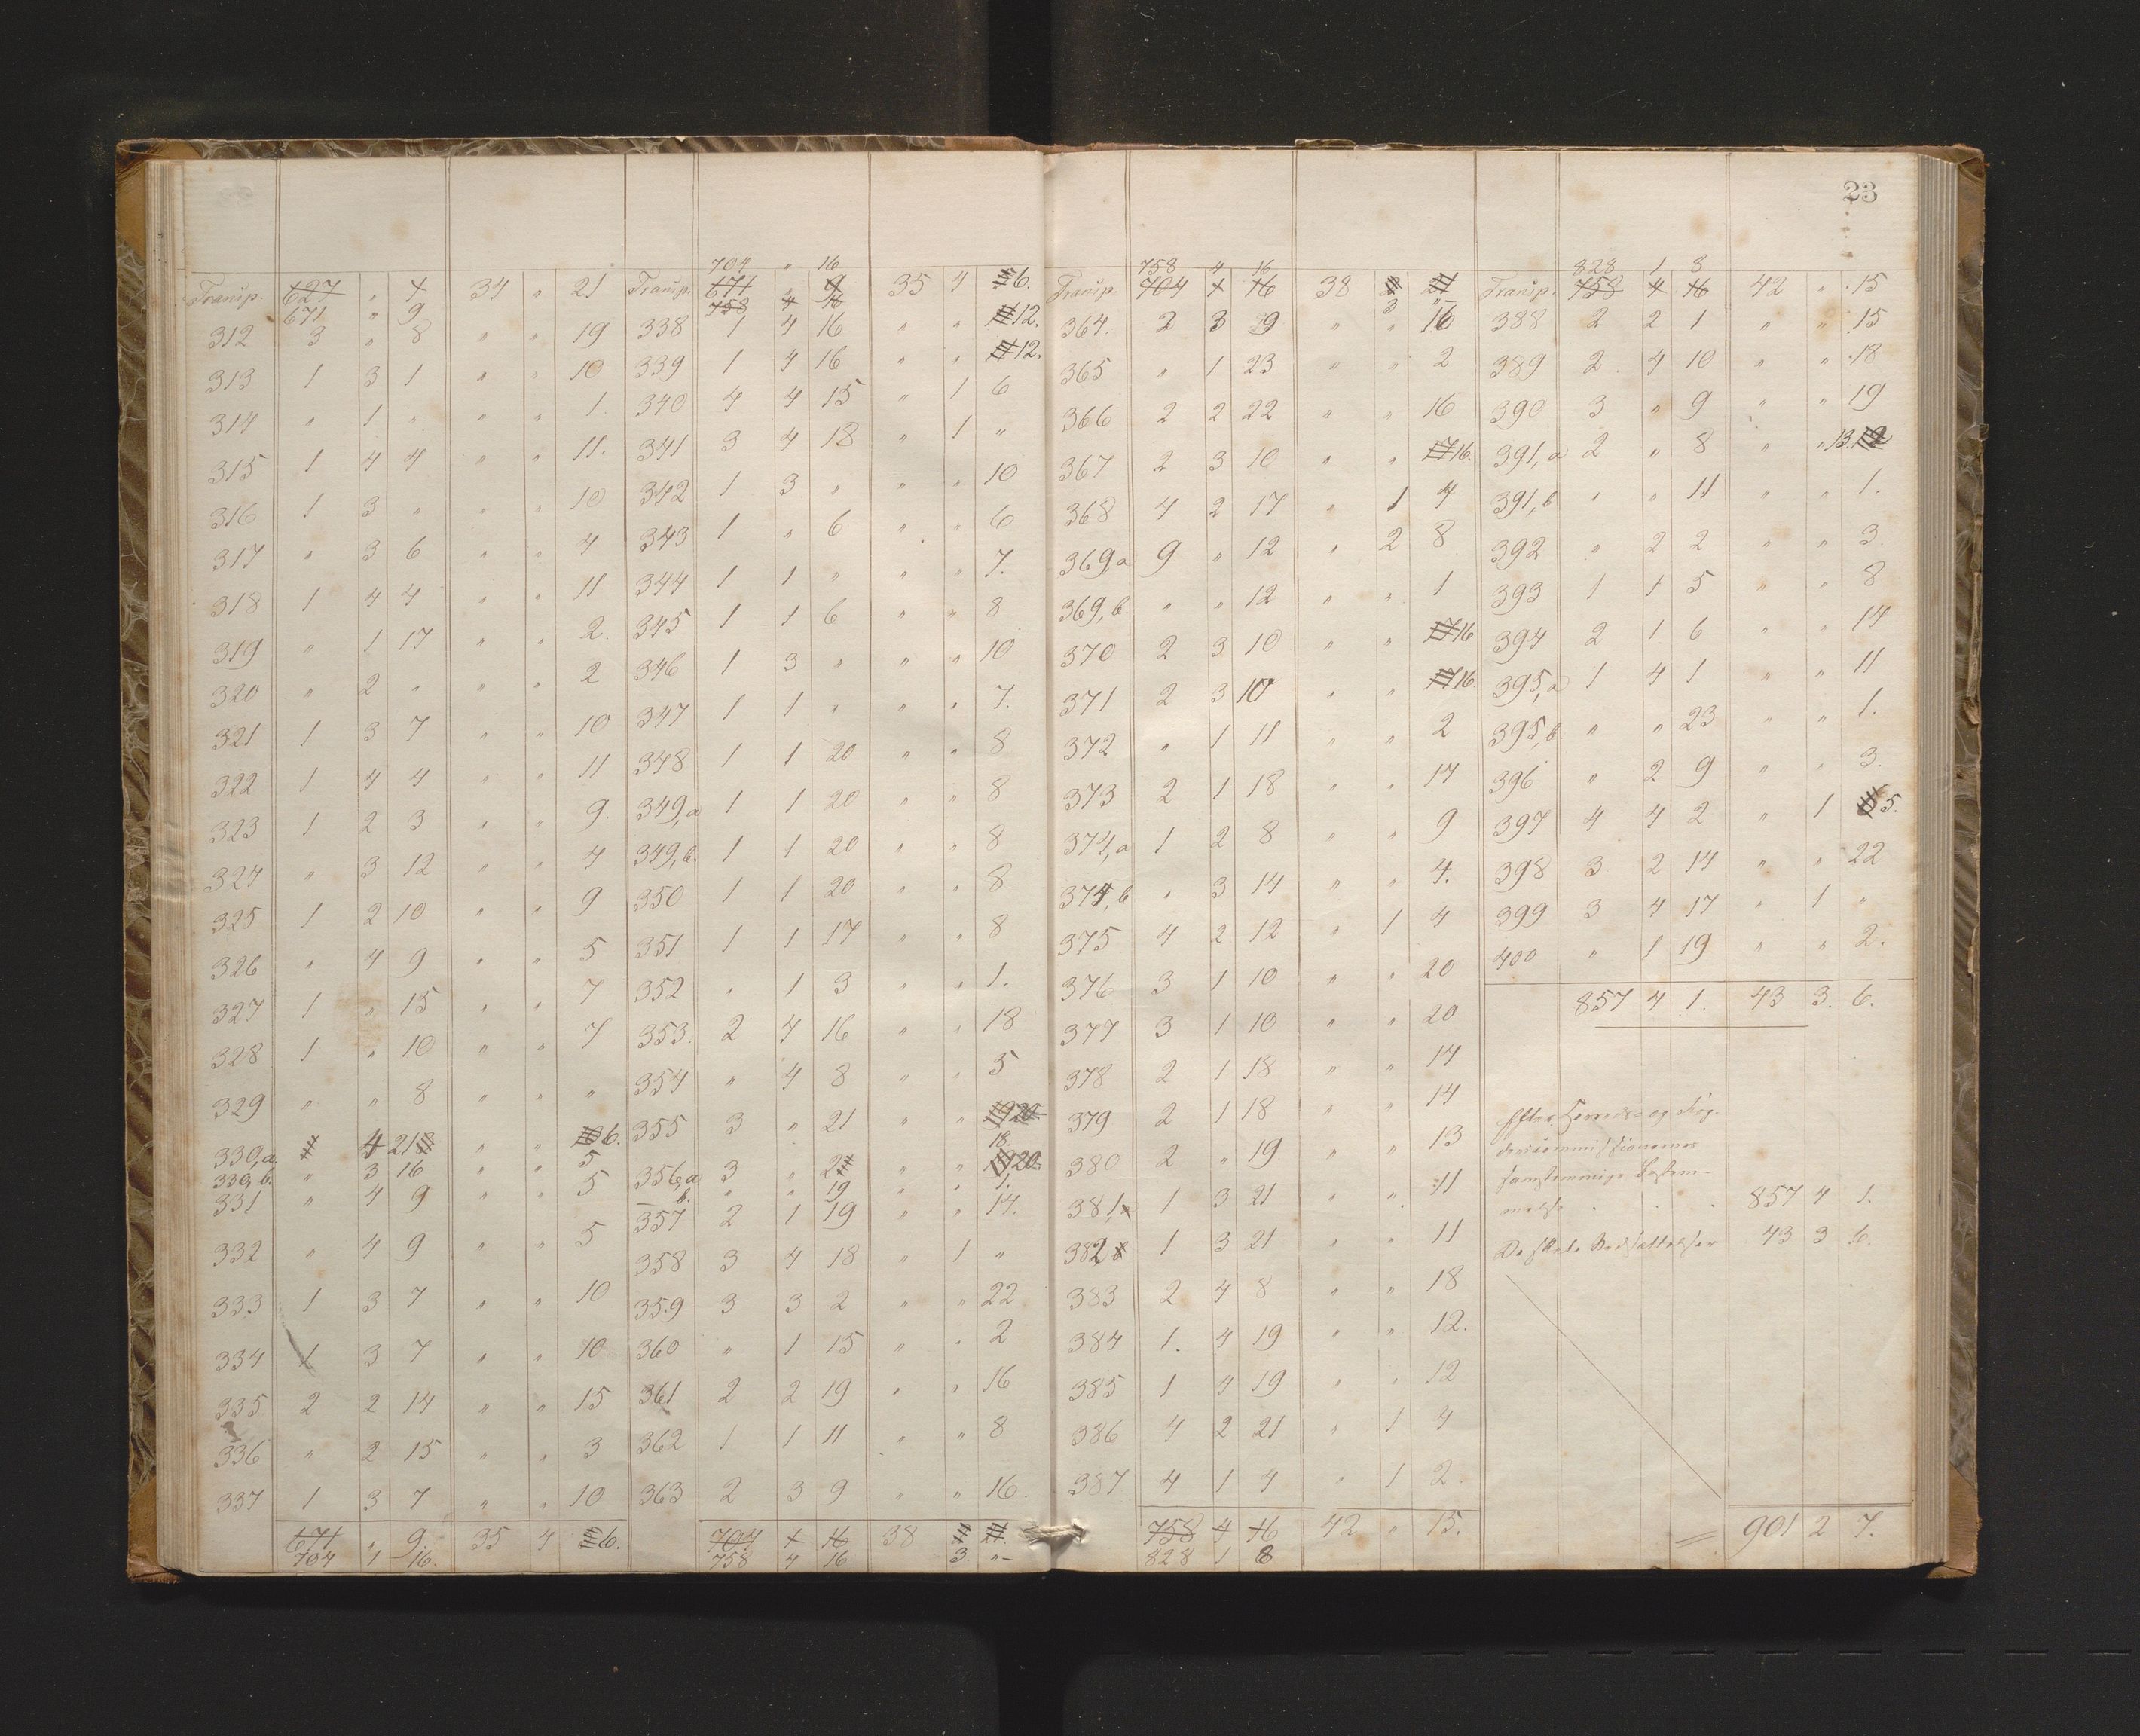 23
704 " 16
758 4 16
828 1 8
Transp. 627 " 4 34 " 21
671 " 9
312 3 " 8 " " 19
313 1 3 1 " " 10
314 " 1 " " " 1
315 1 4 4 " " 11.
316 1 3 " " " 10
317 " 3 6 " " 4
318 1 4 4 " " 11
319 " 1 17 " " 2.
320 " 2 " " " 2
321 1 3 7 " " 10
322 1 4 4 " " 11
323 1 2 3 " " 9.
324 " 3 12 " " 4
325 1 2 10 " " 9
326 " 4 9 " " 5
327 1 " 15 " " 7
328 1 " 10 " " 7
329 " " 8 " " "
330,a. 4 21 " " 6.
330,b. " 3 16 " " 5
331 " 4 9 " " 5
332 " 4 9 " " 5
333 1 3 7 " " 10
334 1 3 7 " " 10
335 2 2 14 " " 15
336 " 2 15 " " 3
337 1 3 7 " " 10
671 " 9 35 4 6.
704 1 16.
Transp. 671 " 9 35 4 6.
758 4 16
338 1 4 16 " " 12.
339 1 4 16 " " 12.
340 4 4 15 " 1 6
341 3 4 18 " 1 "
342 1 3 " " " 10
343 1 " 6 " " 6
344 1 1 " " " 7.
345 1 1 6 " " 8
346 1 3 " " " 10
347 1 1 " " " 7.
348 1 1 20 " " 8
349,a 1 1 20 " " 8
349,b. 1 1 20 " " 8
350 1 1 20 " " 8
351 1 1 17 " " 8
352 " 1 3 " " 1.
353. 2 4 16 " " 18
354 " 4 8 " " 5
355 3 " 21 " " 20
18.
356,a 3 " 2 " " 20
b. " " 19 " " 1.
357 2 1 19 " " 14.
358 3 4 18 " 1 "
359 3 3 2 " " 22
360 " 1 15 " " 2
361 2 2 19 " " 16
362 1 1 11 " " 8
363 2 3 9 " " 16.
704 4 16 38
758 4 16 3 "
Transp. 704 4 16 38
3 "
364. 2 3 9 " " 16
365 " 1 23 " " 2
366 2 2 22 " " 16
367 2 3 10 " " 16.
368 4 2 17 " 1 4
369,a 9 " 12 " 2 8
369,b. " " 12 " " 1
370 2 3 10 " " 16
371 2 3 10 " " 16.
372 " 1 11 " " 2
373 2 1 18 " " 14
374,a 1 2 8 " " 9
374,b " 3 14 " " 4.
375 4 2 12 " 1 4
376 3 1 10 " " 20
377 3 1 10 " " 20
378 2 1 18 " " 14
379 2 1 18 " " 14
380 2 " 19 " " 13
381, 1 3 21 " " 11
382 1 3 21 " " 11
383 2 4 8 " " 18
384 1. 4 19 " " 12.
385 1 4 19 " " 12
386 4 2 21 " 1 4
387 4 1 4 " 1 2.
758 4 16 42 " 15.
828 1 8
Transp. 758 4 16 42 " 15
388 2 2 1 " " 15
389 2 4 10 " " 18
390 3 " 9 " " 19
391,a 2 " 8 " " 13.
391,b " " 11 " " 1.
392 " 2 2 " " 3
393 1 1 5 " " 8
394 2 1 6 " " 14
395,a 1 4 1 " " 11
395,b " " 23 " " 1.
396 " 2 9 " " 3.
397 4 4 2 " 1 5.
398 3 2 14 " " 22
399 3 4 17 " 1 "
400 " 1 19 " " 2.
857 4 1. 43 3. 6.
Efter Herreds og Fog-
dericommissionernes
samstemmige Bestem-
melse . . . 857 4 1.
De skete Nedsættelser 43 3 6.
= 901 2 7.